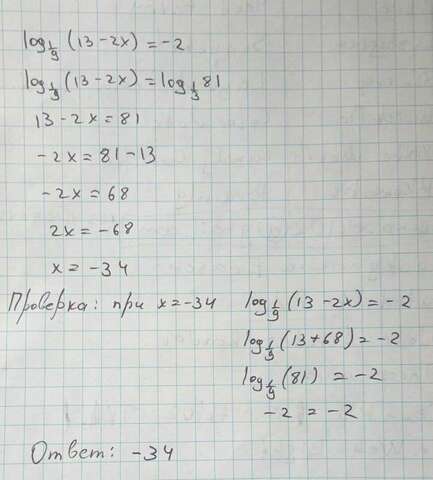 log 1/9 (13 - 2x) = -2
log 1/9 (13 - 2x) = log 1/9 81
13 - 2x = 81
-2x = 81 - 13
-2x = 68
2x = -68
x = -34
Проверка: при x = -34
log 1/9 (13 - 2x) = -2
log 1/9 (13 + 68) = -2
log 1/9 (81) = -2
-2 = -2
Ответ: -34